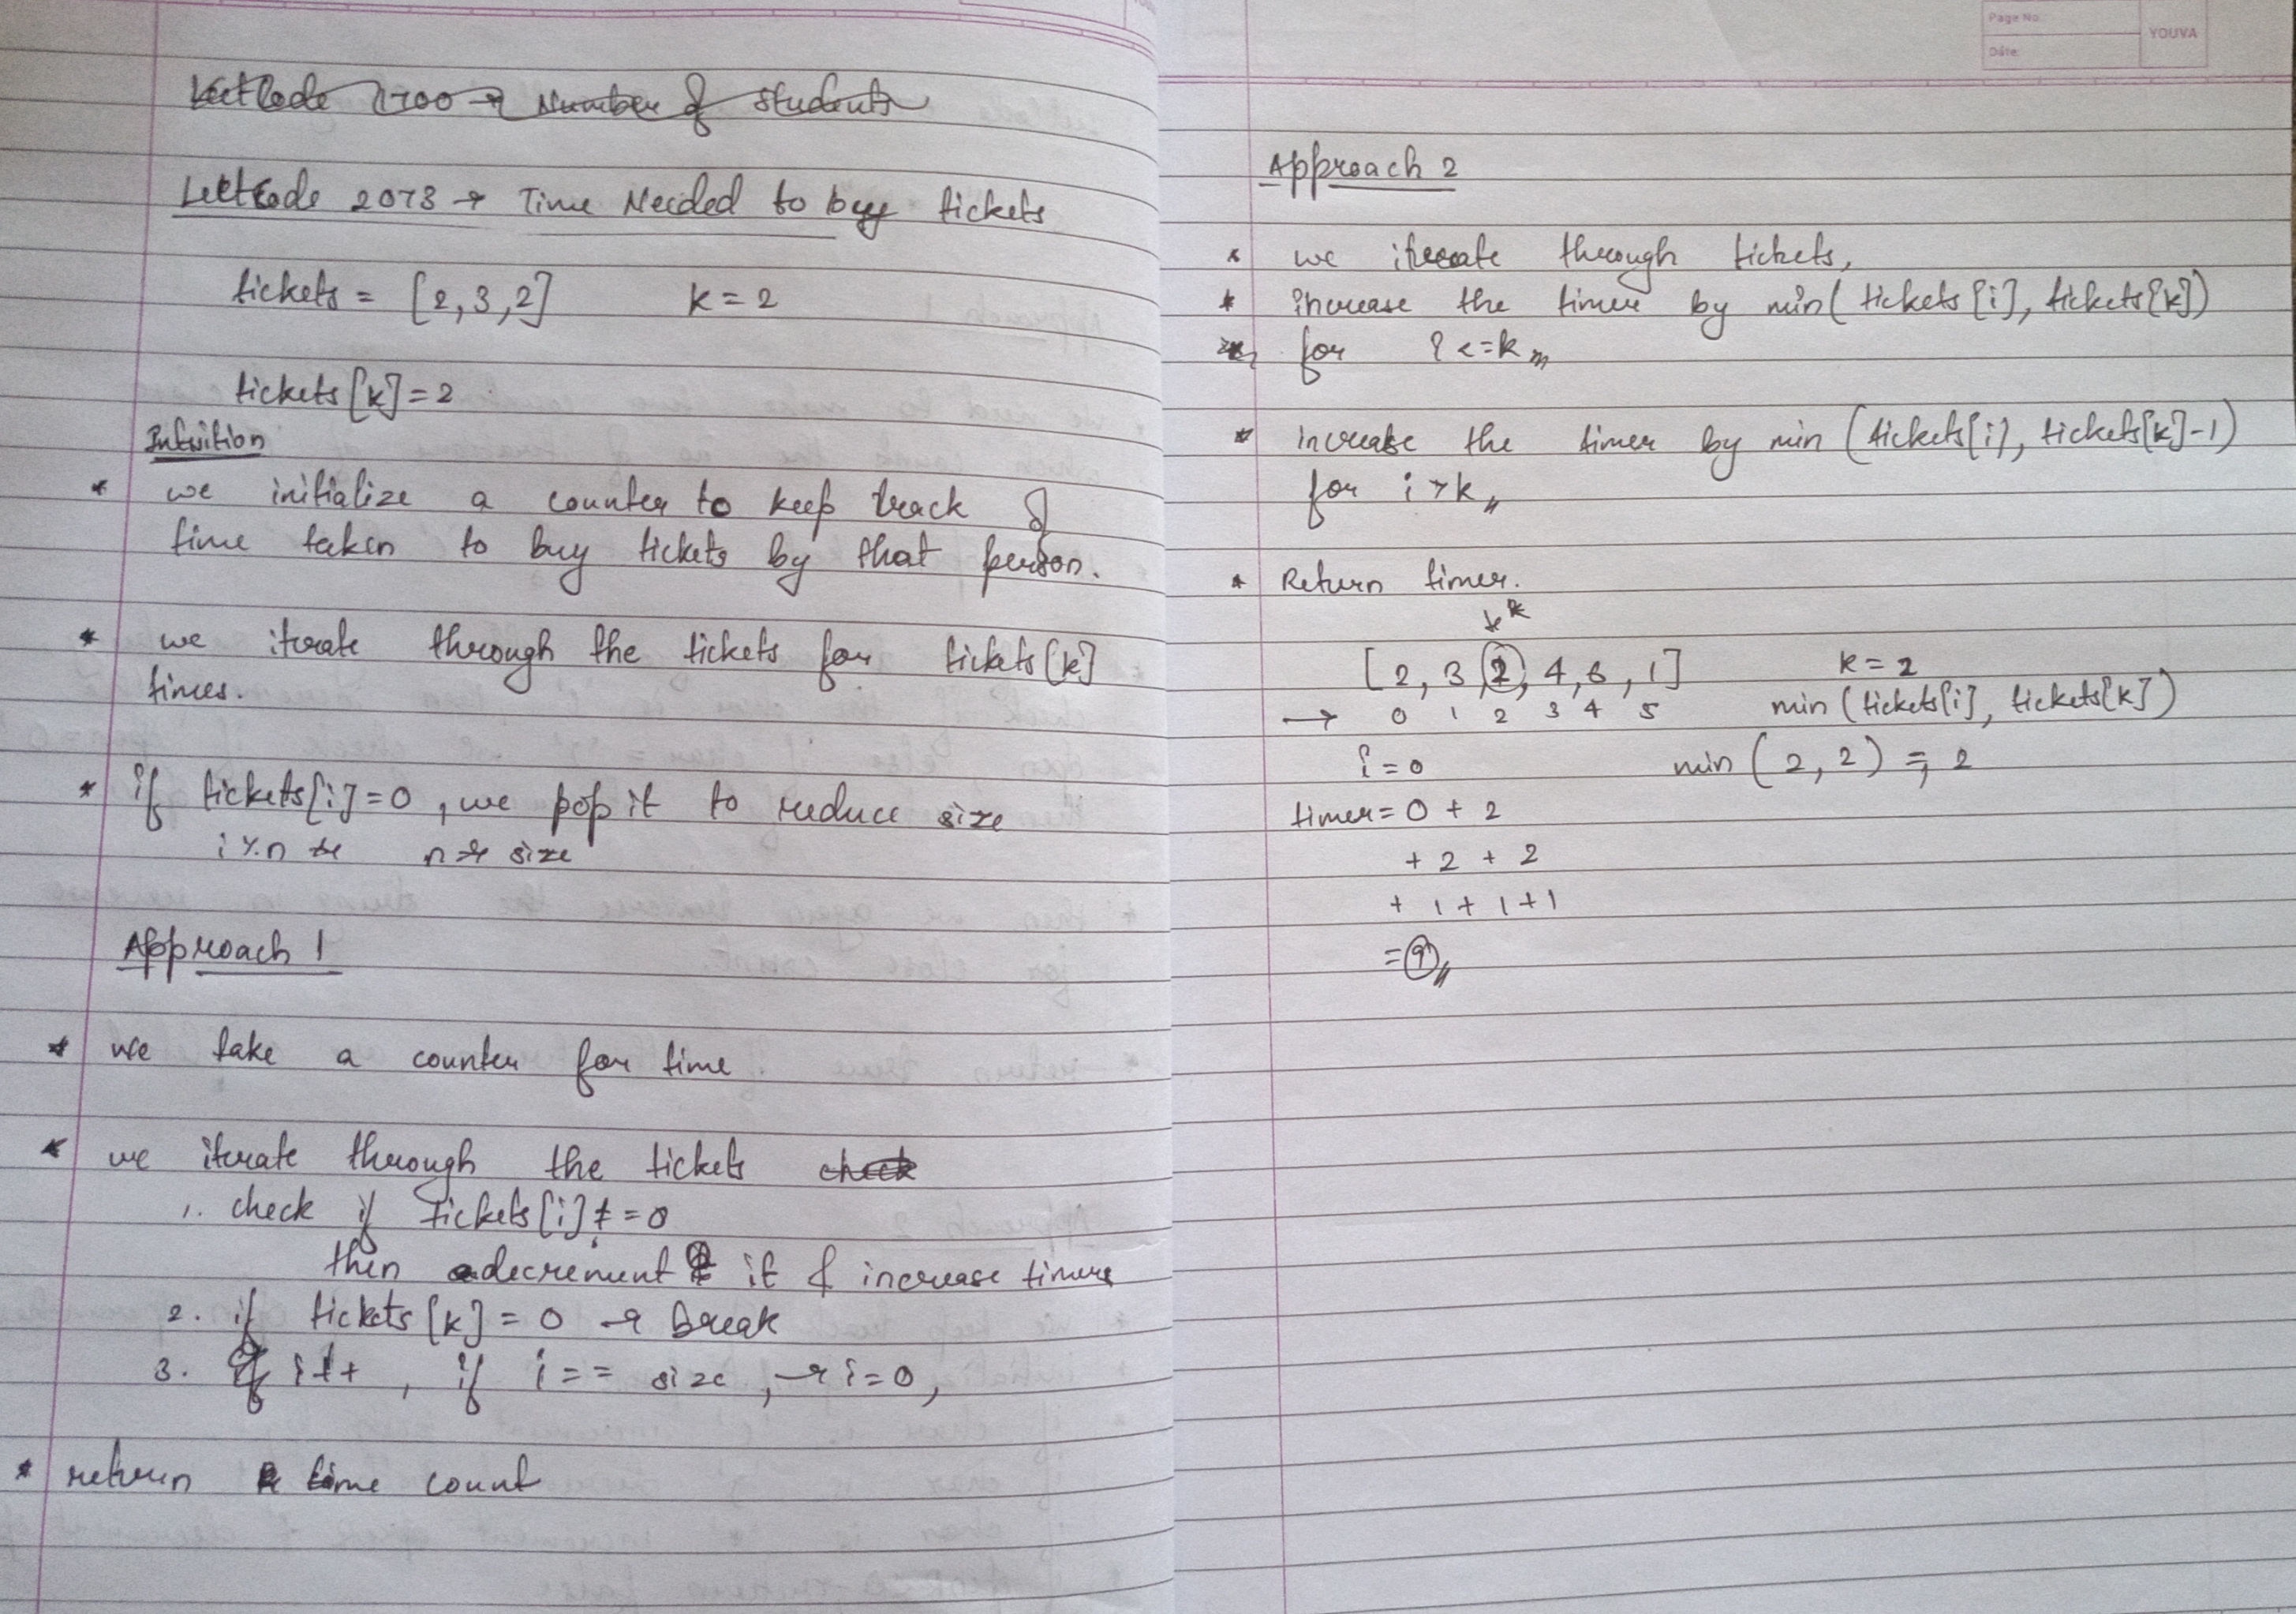 LeetCode 1700 → Number of students
LeetCode 2073 → Time Needed to buy tickets
tickets = [2,3,2] k = 2
tickets[k] = 2
Intuition
* we initialize a counter to keep track of
time taken to buy tickets by that person.
* we iterate through the tickets for tickets[k]
times.
* if tickets[i] = 0, we pop it to reduce size
i % n n → size
Approach 1
* we take a counter for time
* we iterate through the tickets check
1. check if tickets[i] != 0
then decrement it & increase timer
2. if tickets[k] = 0 → break
3. i++, if i == size, → i=0,
* return time count
Page No.:
Date:
YOUVA
Approach 2
* we iterate through tickets,
* increase the timer by min(tickets[i], tickets[k])
for i <= k
* increase the timer by min (tickets[i], tickets[k]-1)
for i > k
* Return timer.
k
[2, 3, 2, 4, 6, 1] k = 2
→ 0 1 2 3 4 5 min (tickets[i], tickets[k])
i = 0 min (2, 2) = 2
timer = 0 + 2
+ 2 + 2
+ 1 + 1 + 1
= 9